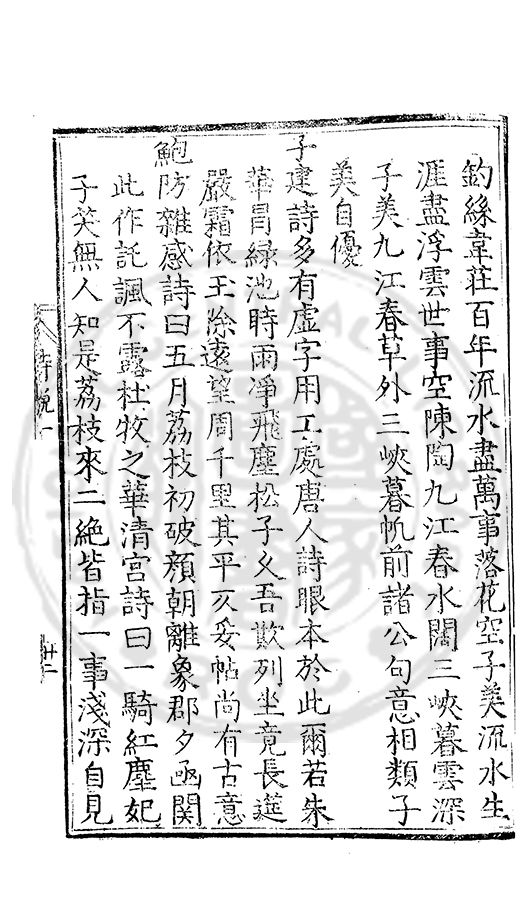 釣絲韋莊百年流水盡萬事落花空子美流水生
涯盡浮雲世事空陳陶九江春水闊三峽暮雲深
子美九江春草外三峽暮帆前諸公句意相類子
美自優
子建詩多有虛字用工處唐人詩眼本於此爾若朱
華冒緑池時雨凈飛塵松子久吾欺列坐竟長筵
嚴霜依玉除遠望周千里其平仄妥帖尚有古意
鮑防雜感詩曰五月荔枝初破顔朝離象郡夕函關
此作託諷不露杜牧之華清宫詩曰一騎紅塵妃
子笑無人知是荔枝來二絶皆指一事淺深自見
詩說一
廿二